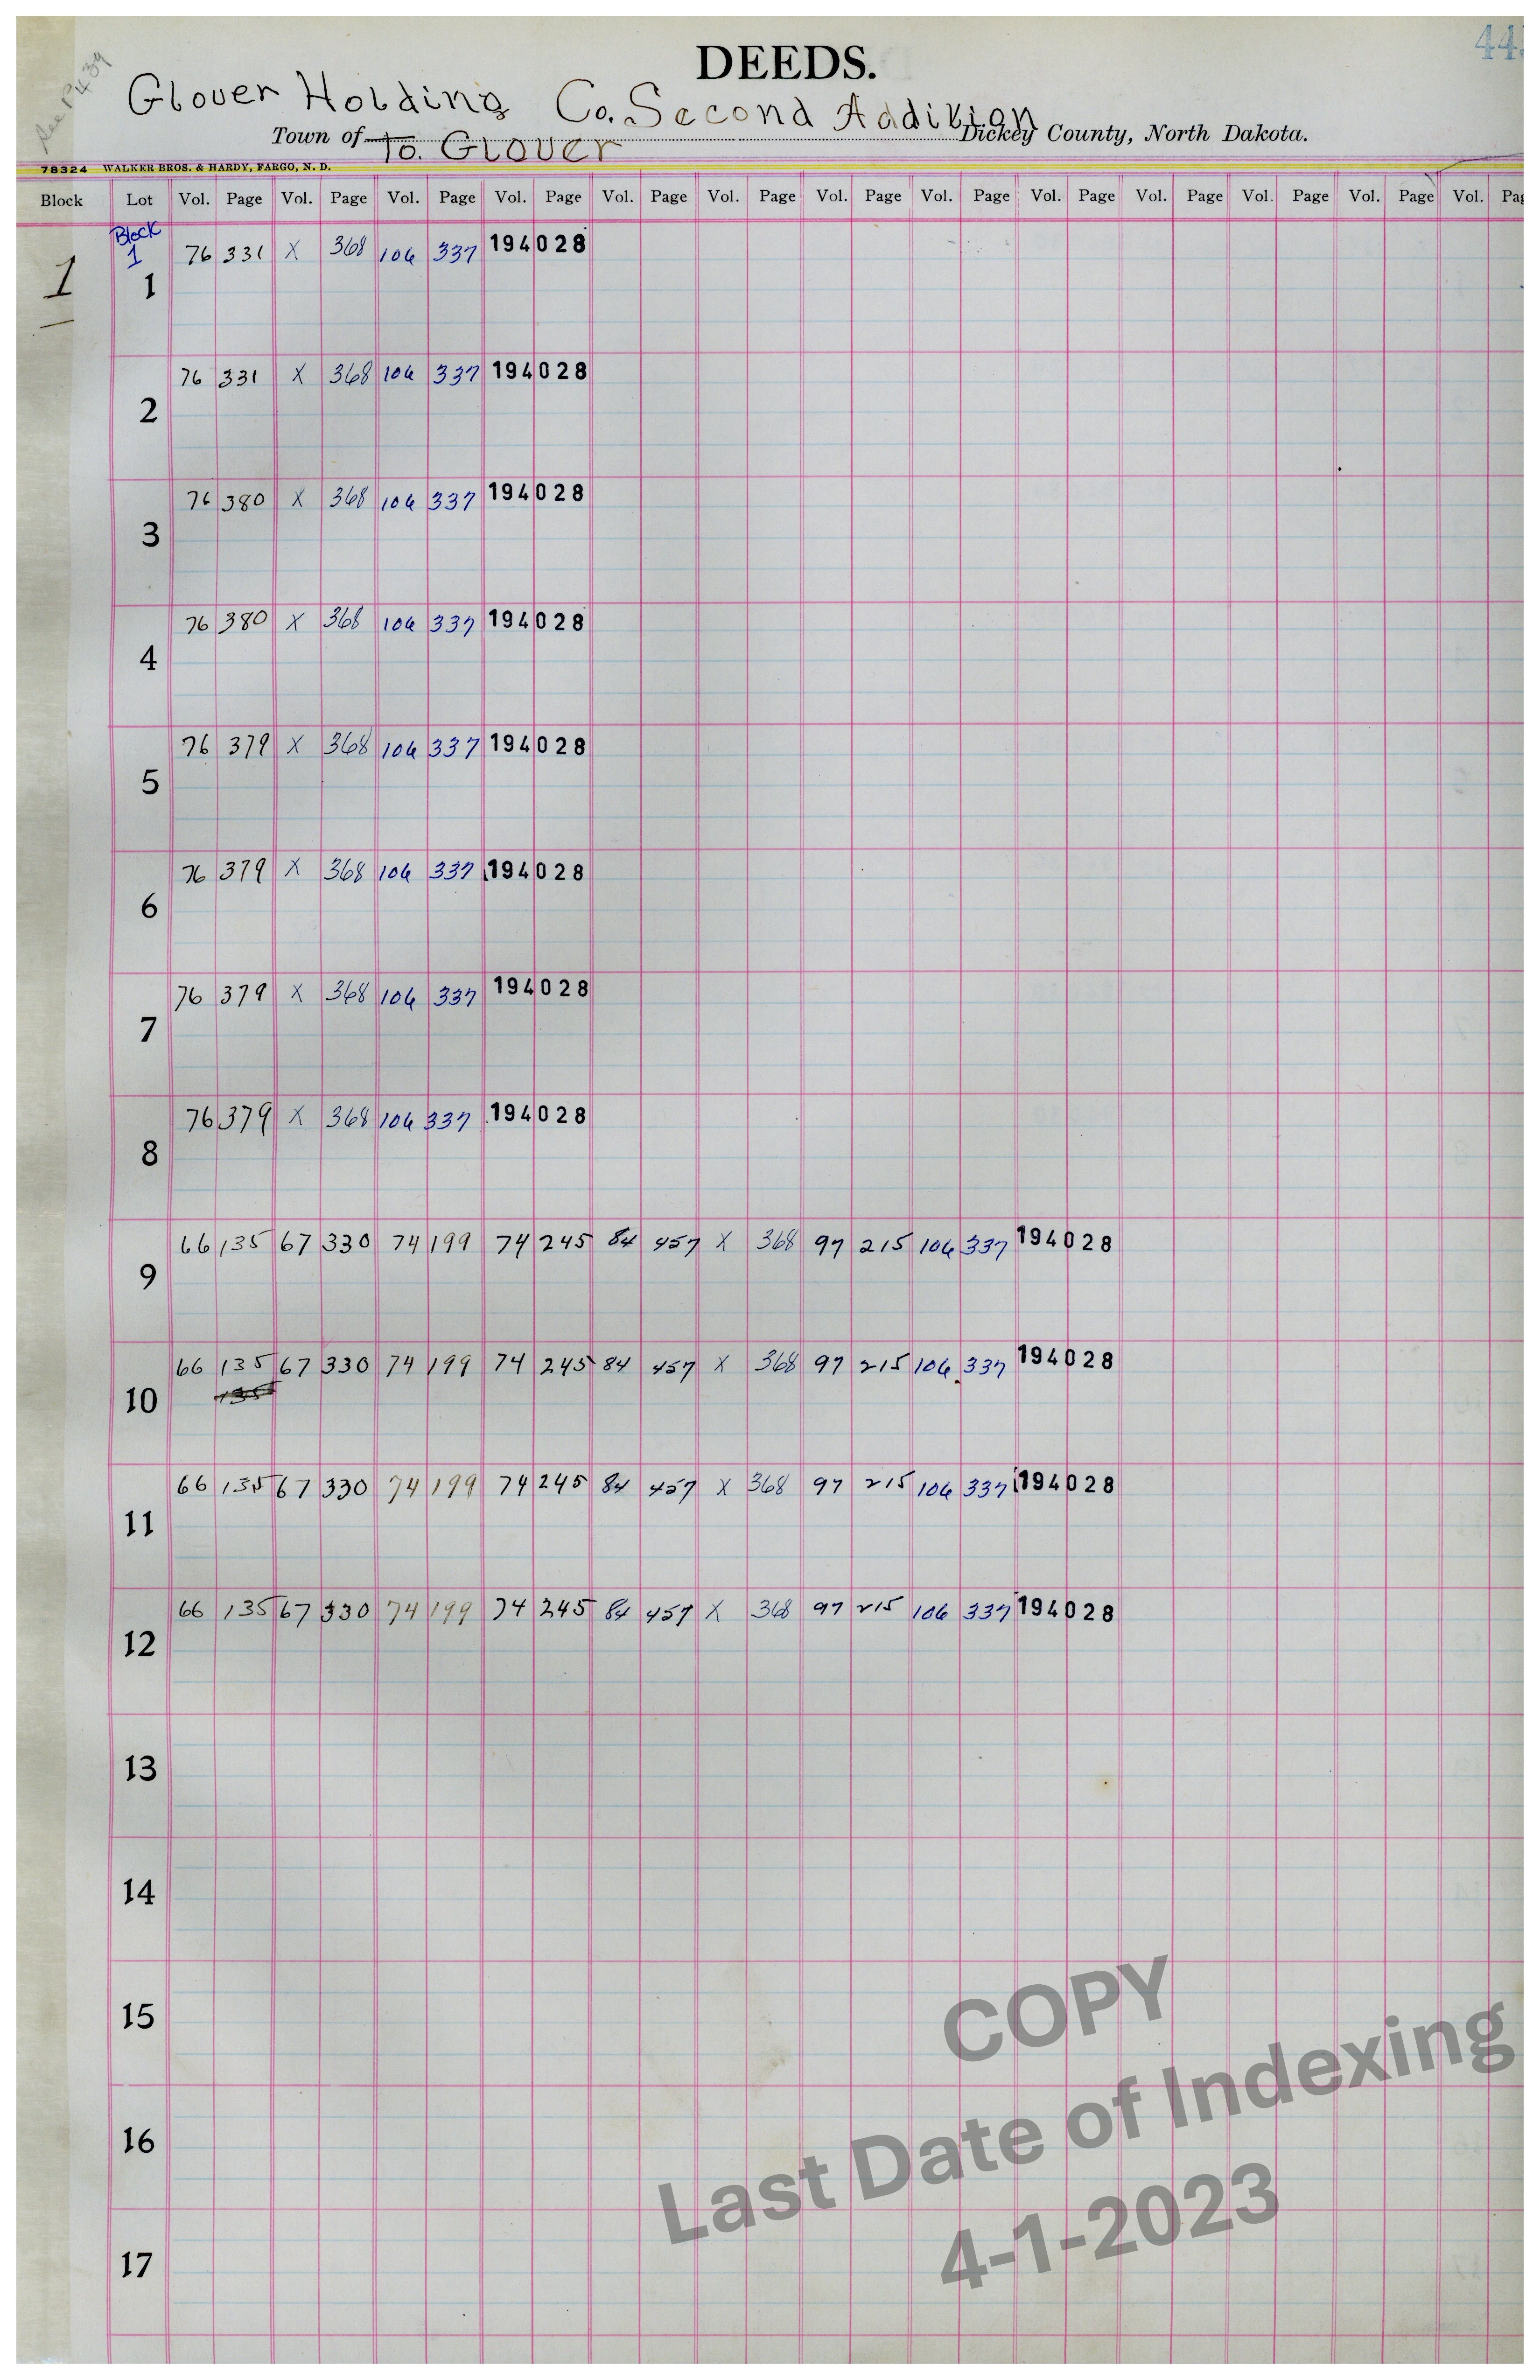 See P 439
44
DEEDS.
Glover Holding Co. Second Addition
Town of To. Glover Dickey County, North Dakota.
78324 WALKER BROS. & HARDY, FARGO, N. D.
Block Lot Vol. Page Vol. Page Vol. Page Vol. Page Vol. Page Vol. Page Vol. Page Vol. Page Vol. Page Vol. Page Vol. Page Vol. Page Vol.
Block
1
1 1 76 331 X 368 106 337 194028
2 76 331 X 368 106 337 194028
3 76 380 X 368 106 337 194028
4 76 380 X 368 106 337 194028
5 76 379 X 368 106 337 194028
6 76 379 X 368 106 337 194028
7 76 379 X 368 106 337 194028
8 76 379 X 368 106 337 194028
9 66 135 67 330 74 199 74 245 84 457 X 368 97 215 106 337 194028
10 66 135 67 330 74 199 74 245 84 457 X 368 97 215 106 337 194028
135
11 66 135 67 330 74 199 74 245 84 457 X 368 97 215 106 337 194028
12 66 135 67 330 74 199 74 245 84 457 X 368 97 215 106 337 194028
13
14
15
16
17
COPY
Last Date of Indexing
4-1-2023